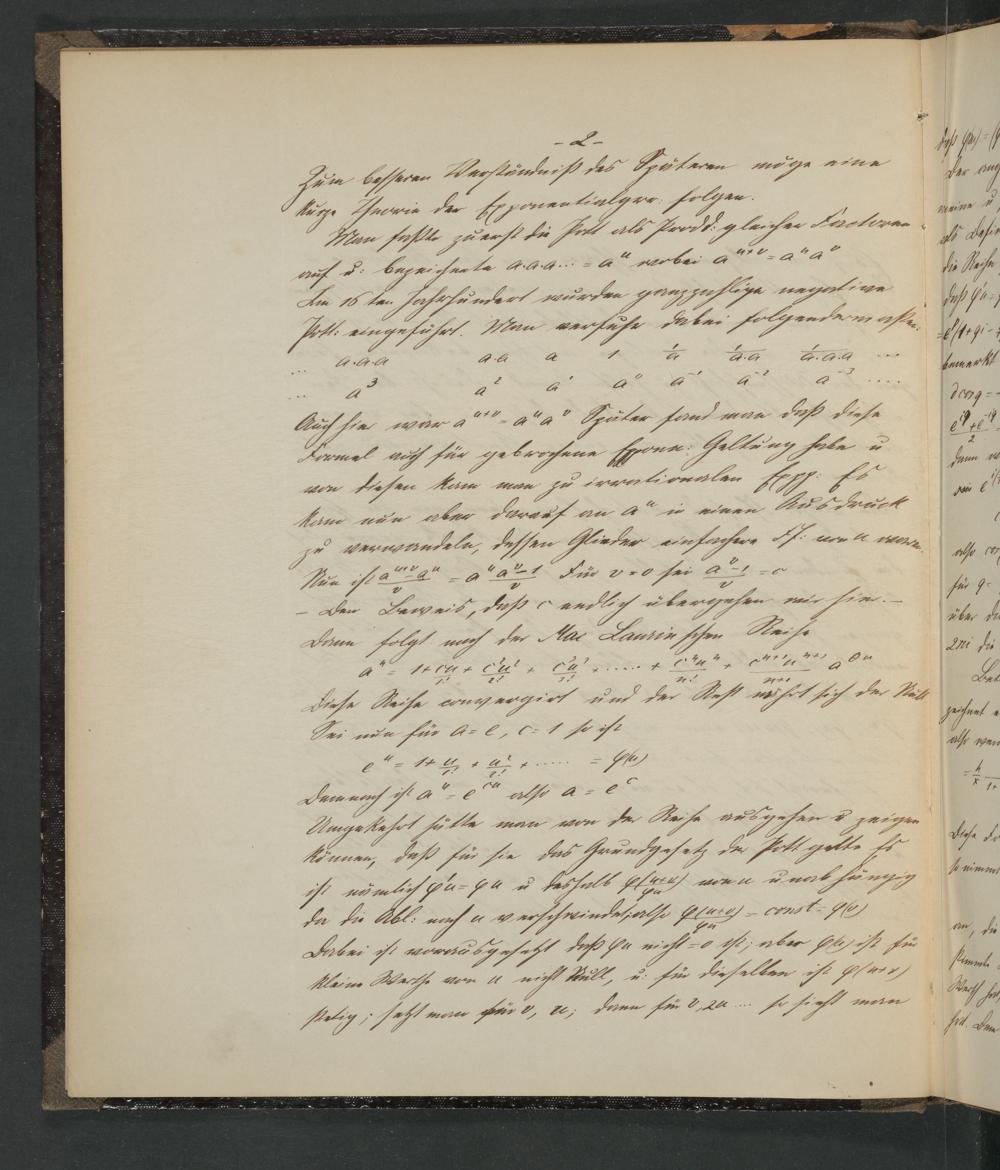 - 2 -
Zum besseren Verständniß des Späteren möge eine
kurze Theorie der Exponentialgrö: folgen.
Man faßte zuerst die Pott als Prodd: gleicher Factoren
auf u: bezeichnete a.a.a... = aⁿ wobei aᵘ⁺ᵛ = aᵘ aᵛ
Im 16 ten Jahrhundert wurden ganzzahlige negative
Pott: eingeführt. Man verfuhr dabei folgendermaßen:
... a.a.a a.a a 1 1/a 1/a.a 1/a.a.a ...
... a³ a² a¹ a⁰ a⁻¹ a⁻² a⁻³ ....
Auch hier war aᵘ⁺ᵛ = aᵘ aᵛ Später fand man daß diese
Formel auch für gebrochene Expon: Geltung habe u
von diesen kam man zu irrationalen Expp: Es
kam nun aber darauf an aᵘ in einen Ausdruck
zu verwandeln, dessen Glieder einfachere Ff: von u waren.
Nun ist (aᵘ⁺ᵛ - aᵘ)/v = aᵘ (aᵛ - 1)/v Für v = 0 sei (aᵛ - 1)/v = c
- Den Beweis, daß c endlich übergehen wir hier. -
Dann folgt nach der Mac Laurinschen Reihe
aᵘ = 1 + cu/1! + c²u²/2! + c³u³/3! + ..... + cⁿuⁿ/n! + cⁿ⁺¹uⁿ⁺¹/n+1 a^Θu
Diese Reihe convergirt und der Rest nährt sich der Null
Sei nun für a = e, c = 1 so ist
eᵘ = 1 + u/1! + u²/2! + ..... = φ(u)
Demnach ist aᵘ = eᶜᵘ also a = eᶜ
Umgekehrt hätte man von der Reihe ausgehen u zeigen
können, daß für sie das Grundgesetz der Pott gelte Es
ist nämlich φ'u = φu u deshalb φ(u+v)/φu von u unabhängig
da die Abl: nach u verschwindet; also φ(u+v)/φu = const = φ(v)
Dabei ist vorausgesetzt daß φu nicht = 0 ist; aber φ(u) ist für
kleine Werthe von u nicht Null, u: für dieselben ist φ(u+v)
stetig; setzt man für v, u; dann für v, 2u ... so sieht man